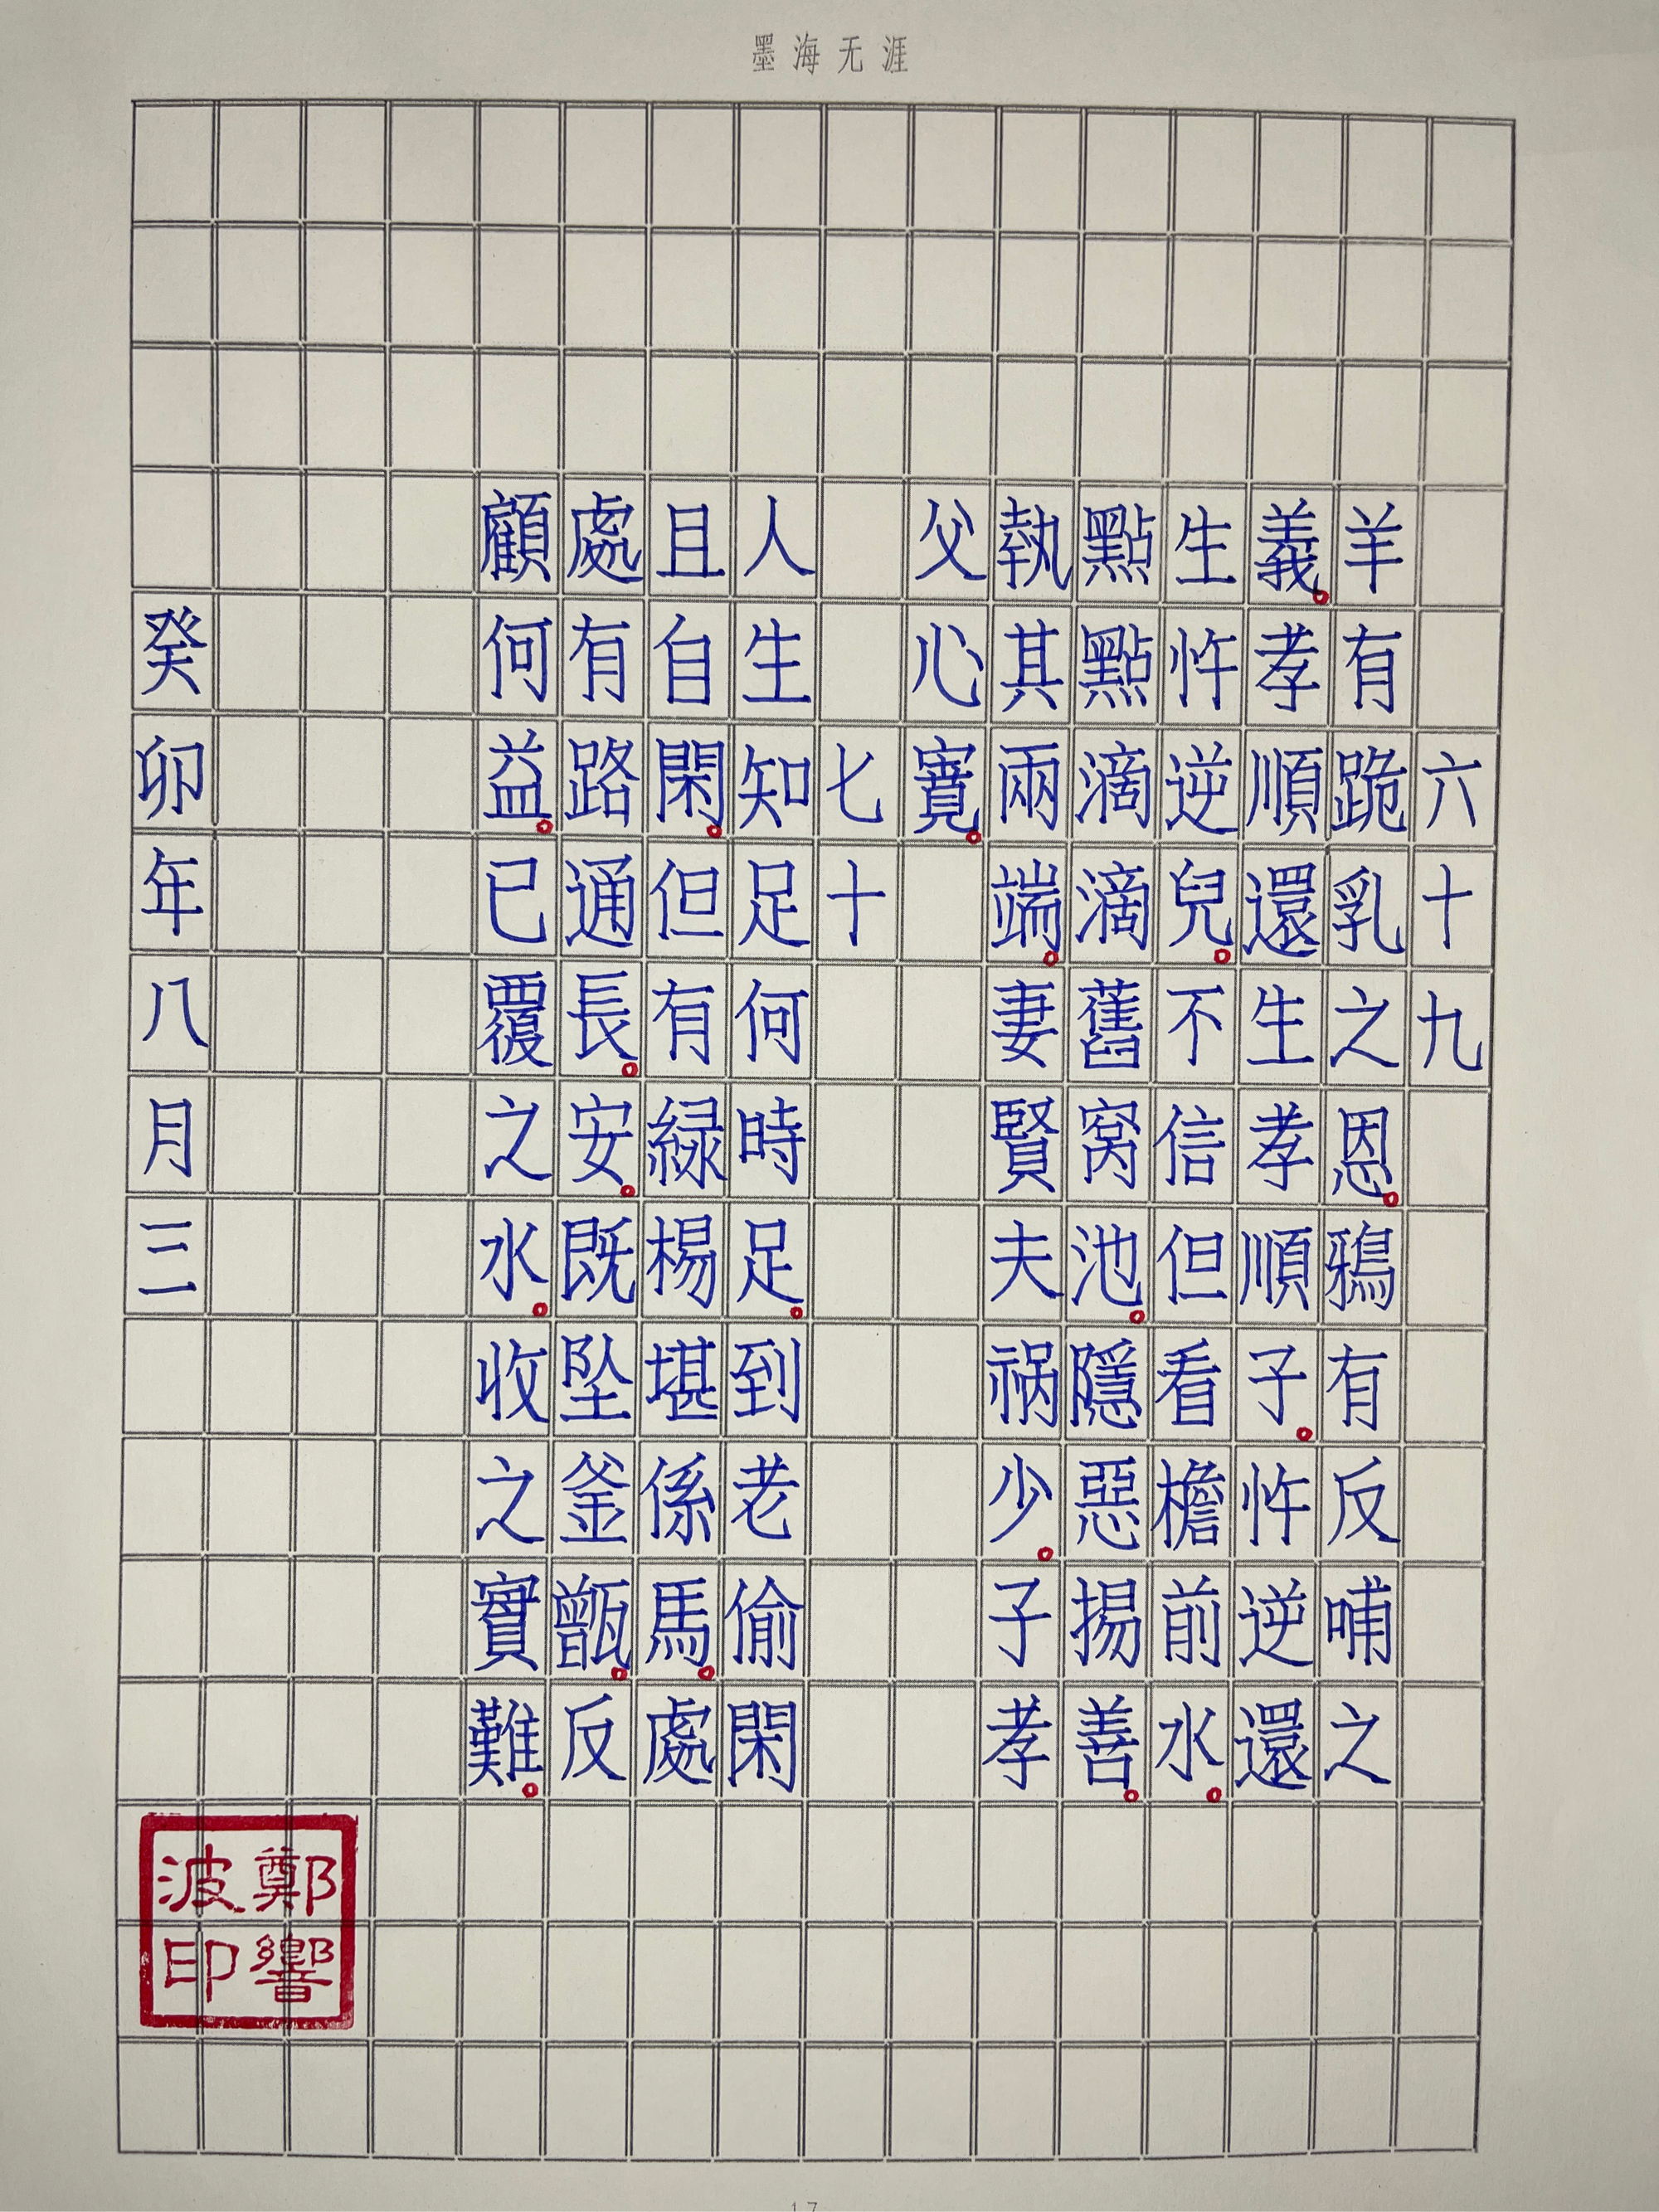 墨海无涯
六十九
羊有跪乳之恩。鴉有反哺之
義。孝順還生孝順子。忤逆還
生忤逆兒。不信但看檐前水。
點點滴滴舊窩池。隱惡揚善。
執其兩端。妻賢夫祸少。子孝
父心寬。
七十
人生知足何時足。到老偷閑
且自閑。但有緑楊堪係馬。處
處有路通長。安。既坠釜甑。反
顧何益。已覆之水。收之實難。
癸卯年八月三
鄭響波印
17